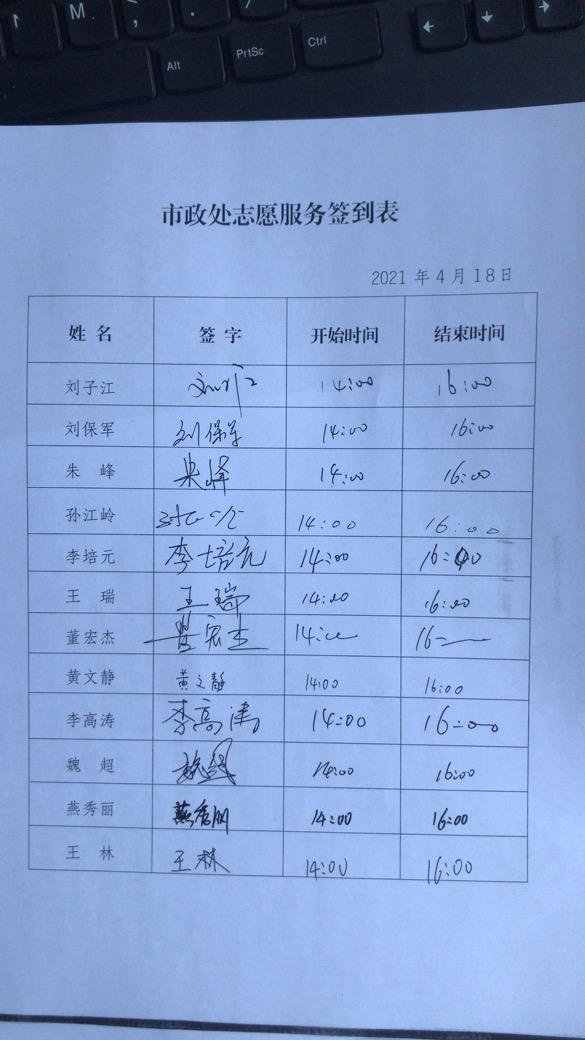 M
Alt
PrtSc
Ctrl
市政处志愿服务签到表
2021年4月18日
姓名 签字 开始时间 结束时间
刘子江 14:00 16:00
刘保军 刘保军 14:00 16:00
朱峰 朱峰 14:00 16:00
孙江岭 14:00 16:00
李培元 李培元 14:00 16:00
王瑞 王瑞 14:00 16:00
董宏杰 董宏杰 14:00 16
黄文静 黄文静 14:00 16:00
李高涛 李高涛 14:00 16:00
魏超 魏超 14:00 16:00
燕秀丽 燕秀丽 14:00 16:00
王林 王林 14:00 16:00